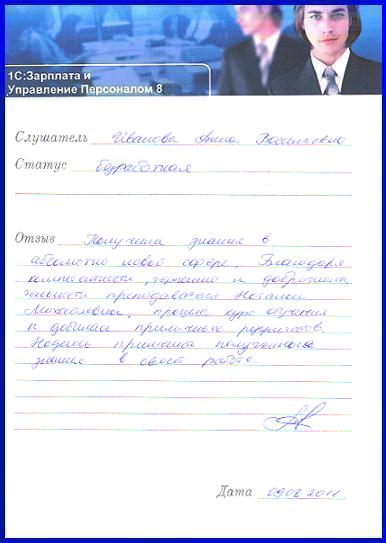 1С:Зарплата и
Управление Персоналом 8
Слушатель Иванова Анна Васильевна
Статус безработная
Отзыв Получила знания в
абсолютно новой сфере. Благодаря
компетентности, терпению и доброжела
тельности преподавателя Наталии
Михайловны, прошла курс обучения
и добилась приличных результатов.
Надеюсь применить полученные
знания в своей работе.
Дата 09.08.2011.